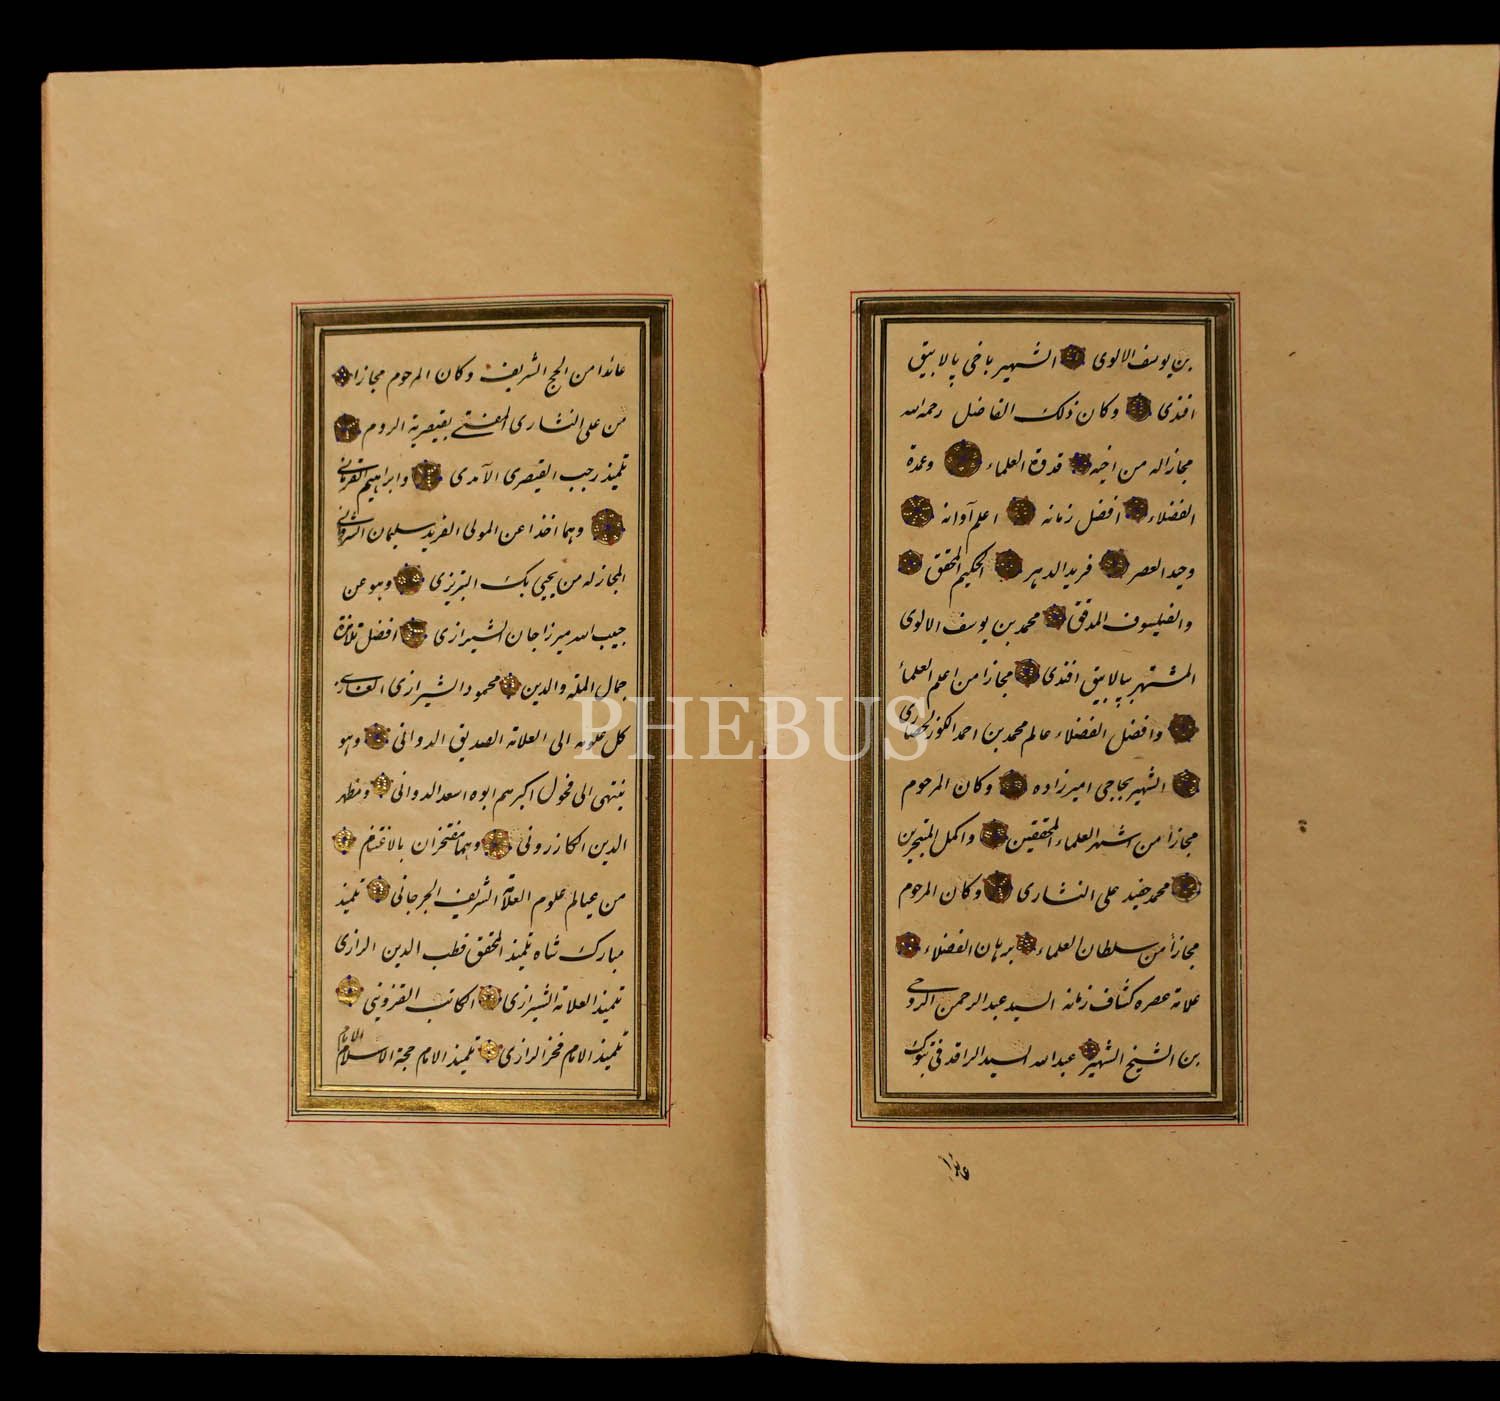 بن يوسف الالوى الشهير باخى پالابيق
افندى وكان ذلك الفاضل رحمه الله
مجازاله من اخيه قدوة العلماء وعمدة
الفضلاء افضل زمانه اعلم آوانه
وحيد العصر فريد الدهر الحكيم المحقق
والفيلسوف المدقق محمد بن يوسف الالوى
المشتهر بپالابيق افندى مجازا من اعلم العلماء
وافضل الفضلاء عالم محمد بن احمد الكوز الحصارى
الشهير بحاجى اميرزاده وكان المرحوم
مجازا من اشهر العلماء المحققين واكمل المتبحرين
محمد حفيد على النثارى وكان المرحوم
مجازا من سلطان العلماء برهان الفضلاء
علامة عصره كشاف زمانه السيد عبد الرحمن الروحى
بن الشيخ الشهير عبد الله السيد الراقد فى تبوك
عائدا
عائدا من الحج الشريف وكان المرحوم مجازا
من على النثارى المفتى بقيصرية الروم
تلميذ رجب القيصرى الآمدى وابراهيم القرمانى
وهما اخذا عن المولى الفريد سليمان الشروانى
المجاز له من يحيى بك التبريزى وهو عن
حبيب الله ميرزا جان الشيرازى افضل تلامذة
جمال الملة والدين محمود الشيرازى
كل علومه الى العلامة الصديق الدوانى وهو
ينتهى الى فحول اكبرهم ابوه اسعد الدوانى ومظهر
الدين الكازرونى وهما مفتخران بالاغتنام
من عيالم علوم العلامة الشريف الجرجانى تلميذ
مبارك شاه تلميذ المحقق قطب الدين الرازى
تلميذ العلامة الشيرازى الكاتب القزوينى
تلميذ الامام فخر الرازى تلميذ الامام حجة الاسلام الامام
PHEBUS